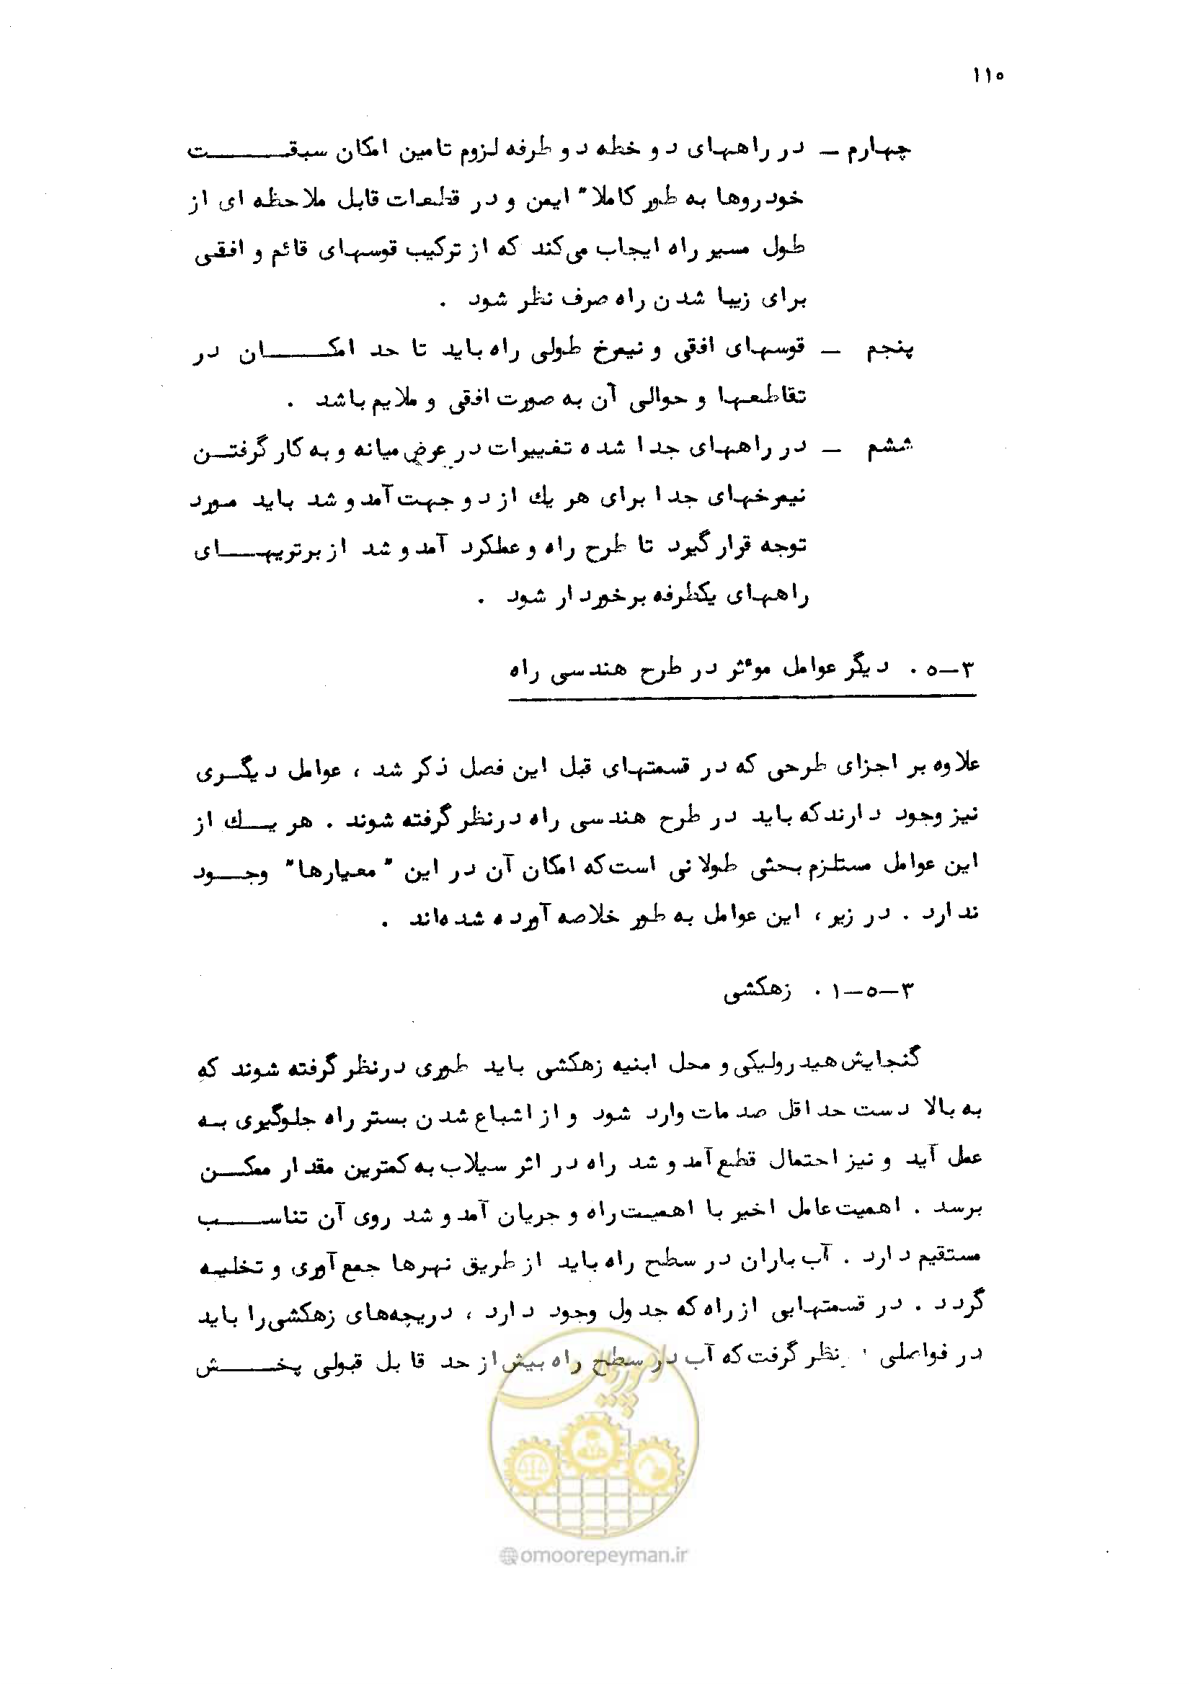 ۱۱۰
چهارم ــ در راههای دو خطه دو طرفه لزوم تامین امکان سبقت
خودروها به طور کاملا" ایمن و در قطعات قابل ملاحظه ای از
طول مسیر راه ایجاب می‌کند که از ترکیب قوسهای قائم و افقی
برای زیبا شدن راه صرف نظر شود .
پنجم ــ قوسهای افقی و نیمرخ طولی راه باید تا حد امکان در
تقاطعها و حوالی آن به صورت افقی و ملایم باشد .
ششم ــ در راههای جدا شده تغییرات در عرض میانه و به کار گرفتن
نیمرخهای جدا برای هر یك از دو جهت آمد و شد باید مورد
توجه قرار گیرد تا طرح راه و عملکرد آمد و شد از برتریهای
راههای یکطرفه برخوردار شود .
۳–۵ . دیگر عوامل موءثر در طرح هندسی راه
علاوه بر اجزای طرحی که در قسمتهای قبل این فصل ذکر شد ، عوامل دیگری
نیز وجود دارند که باید در طرح هندسی راه در نظر گرفته شوند . هر یك از
این عوامل مستلزم بحثی طولانی است که امکان آن در این "معیارها" وجود
ندارد . در زیر ، این عوامل به طور خلاصه آورده شده‌اند .
۳–۵–۱ . زهکشی
گنجایش هیدرولیکی و محل ابنیه زهکشی باید طوری در نظر گرفته شوند که
به بالا دست حداقل صدمات وارد شود و از اشباع شدن بستر راه جلوگیری به
عمل آید و نیز احتمال قطع آمد و شد راه در اثر سیلاب به کمترین مقدار ممکن
برسد . اهمیت عامل اخیر با اهمیت راه و جریان آمد و شد روی آن تناسب
مستقیم دارد . آب باران در سطح راه باید از طریق نهرها جمع آوری و تخلیه
گردد . در قسمتهایی از راه که جدول وجود دارد ، دریچه‌های زهکشی را باید
در فواصلی نظر گرفت که آب در سطح راه بیش از حد قابل قبولی پخش
امور پیمان
@omoorepeyman.ir